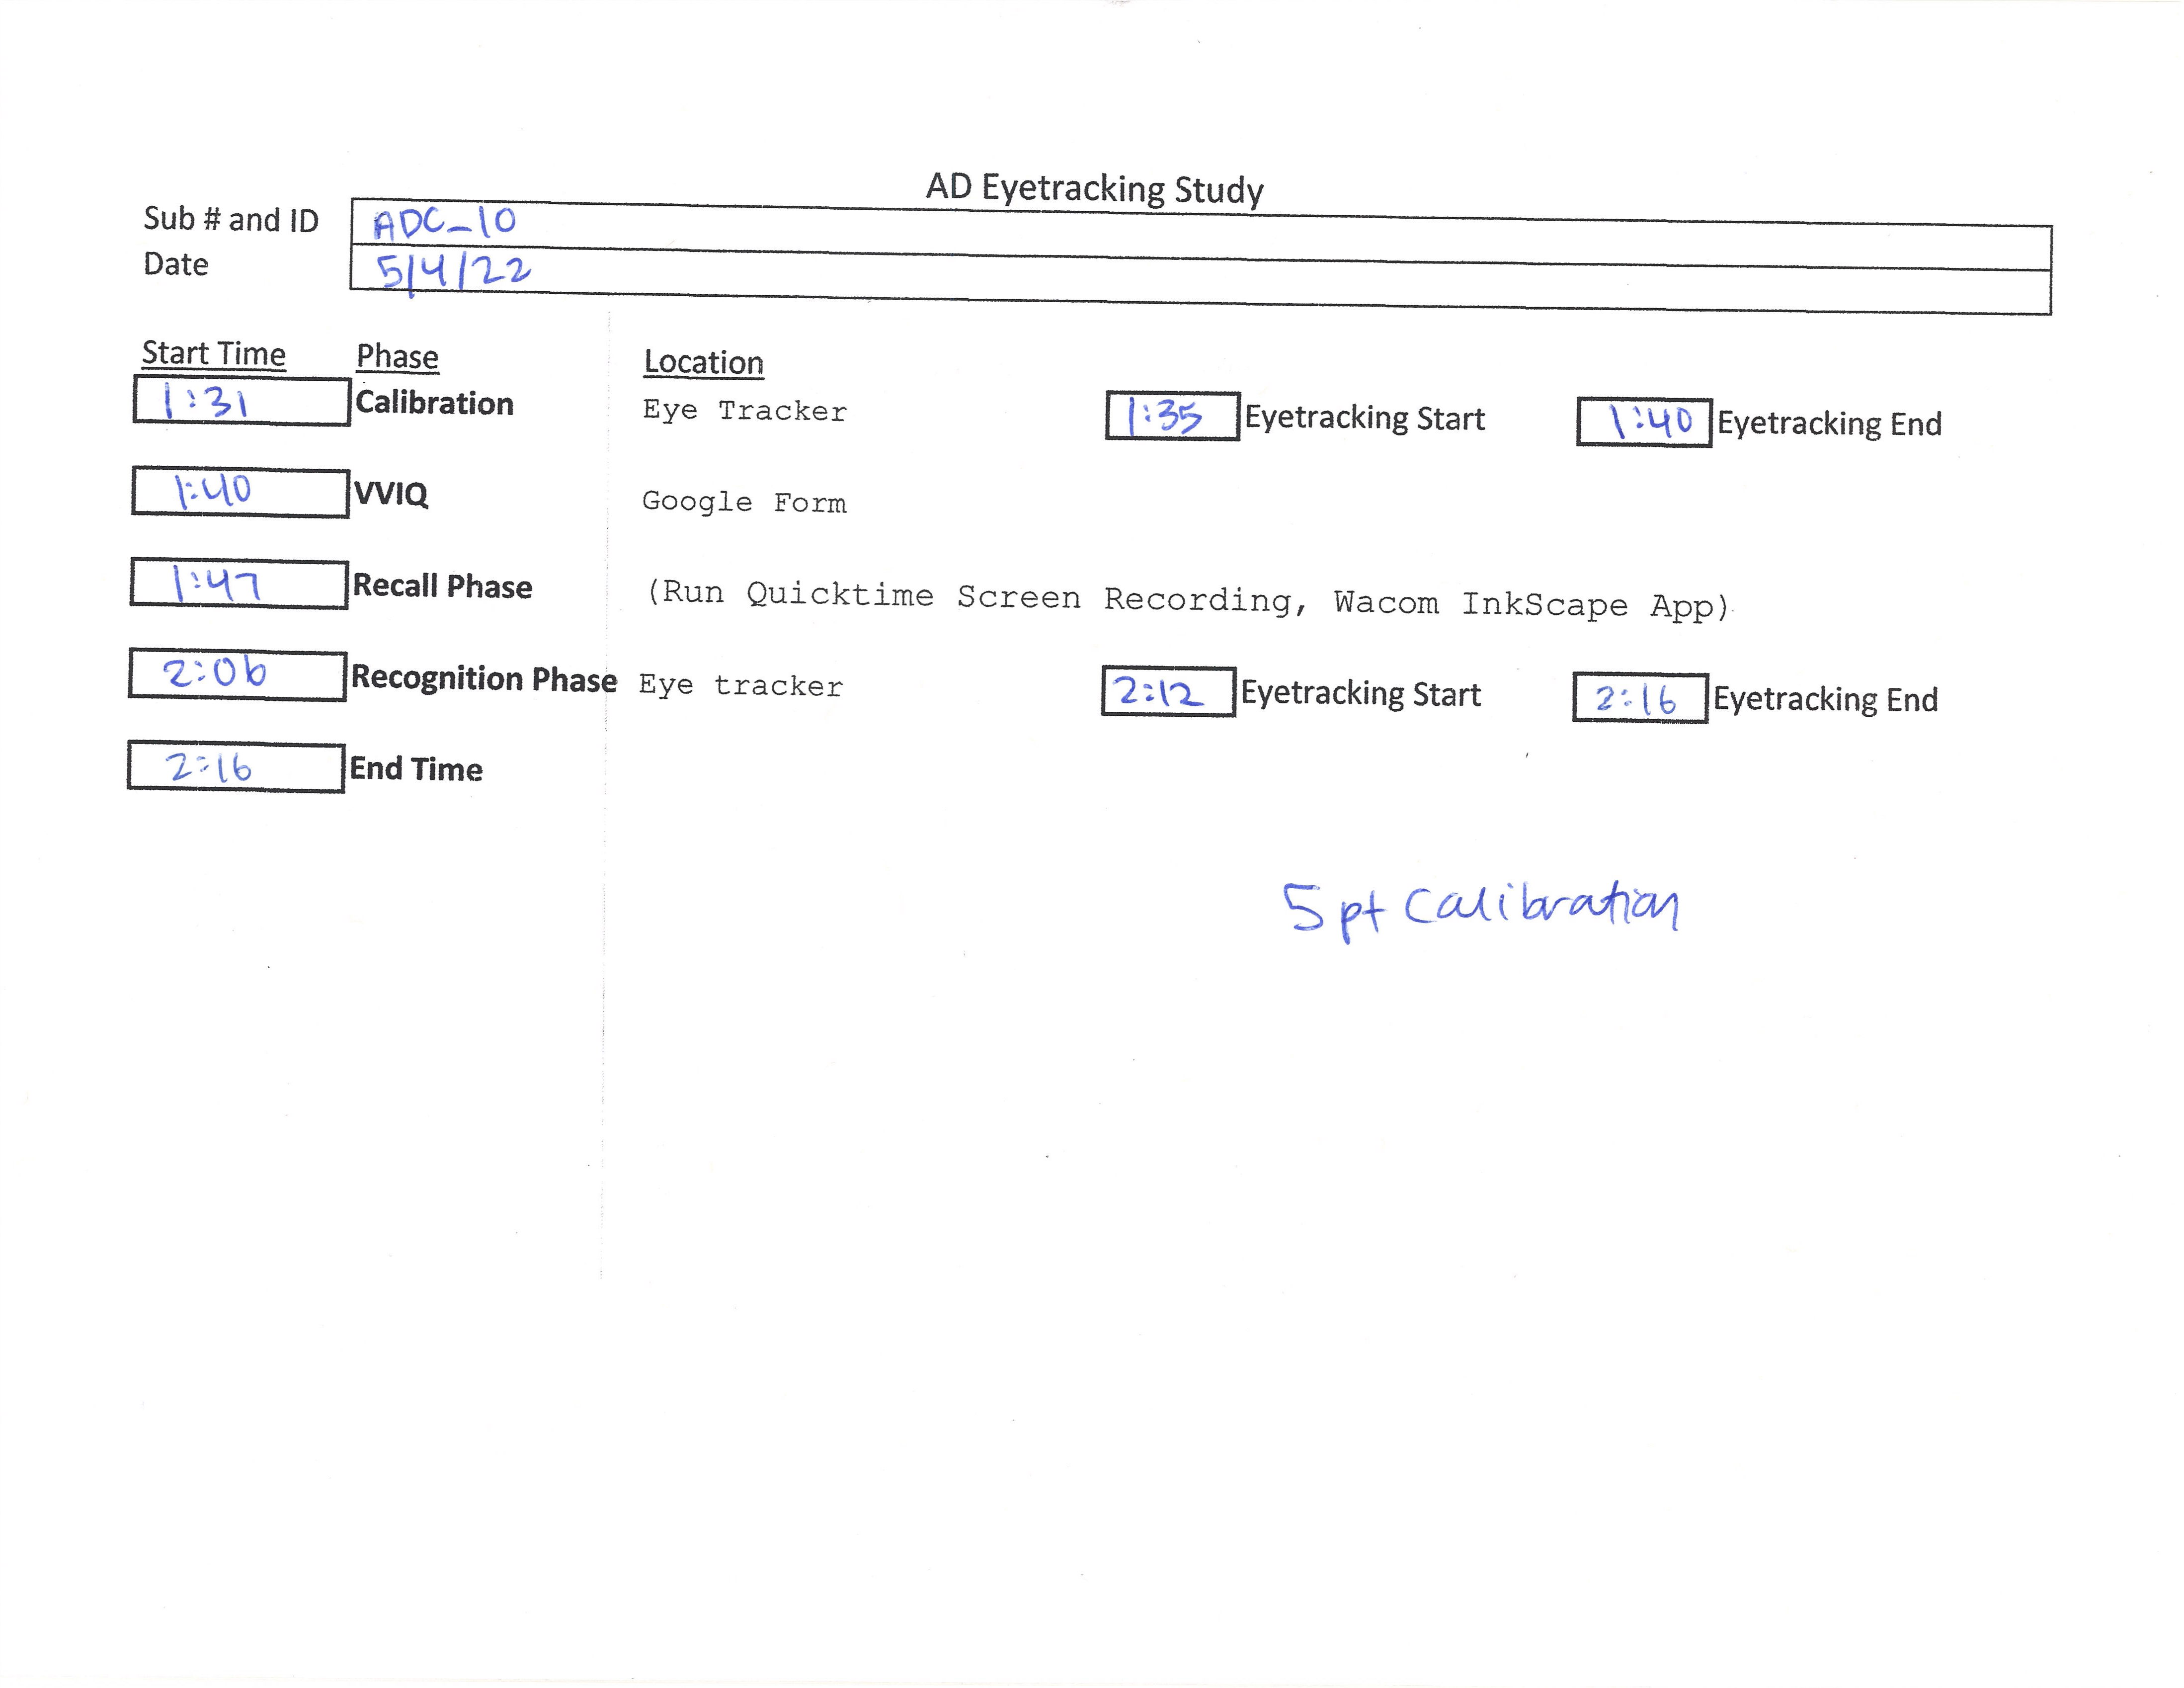 AD Eyetracking Study
Sub # and ID ADC_10
Date 5/4/22
Start Time Phase Location
1:31 Calibration Eye Tracker 1:35 Eyetracking Start 1:40 Eyetracking End
1:40 VVIQ Google Form
1:47 Recall Phase (Run Quicktime Screen Recording, Wacom InkScape App)
2:06 Recognition Phase Eye tracker 2:12 Eyetracking Start 2:16 Eyetracking End
2:16 End Time
5 pt Calibration